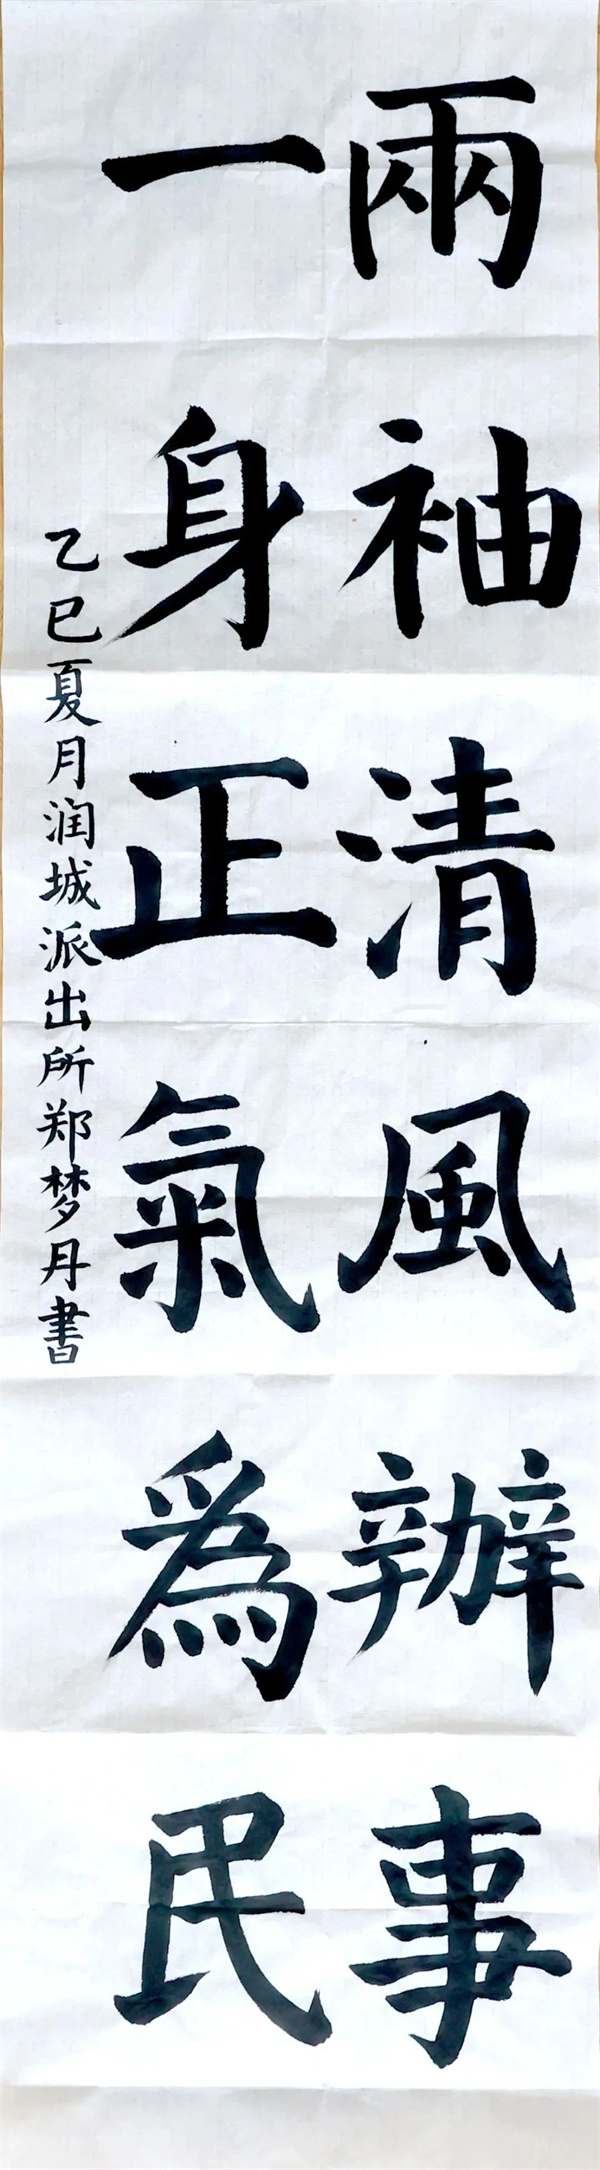 兩袖清風辦事
一身正氣爲民
乙巳夏月润城派出所郑梦丹書